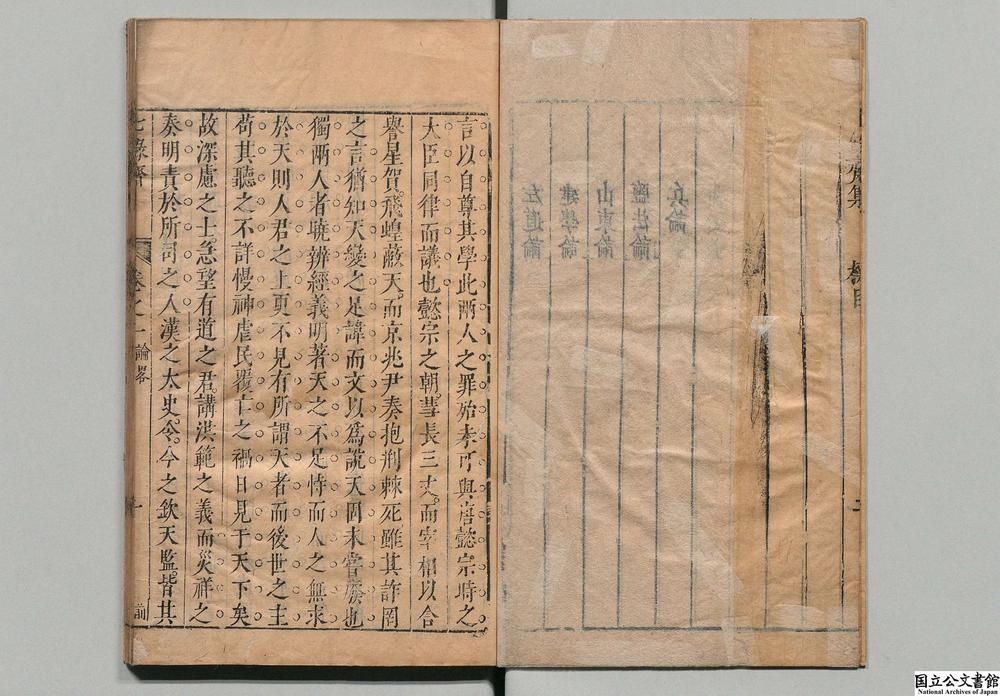 言以自尊其學此兩人之罪殆未可與唐懿宗時之
大臣同律而議也懿宗之朝彗長三丈而宰相以合
譽星賀飛蝗蔽天而京兆尹奏抱荆棘死雖其詐罔
之言猶知天變之足諱而文以爲說天固未嘗廢也
獨兩人者曉辨經義明著天之不足恃而人之無求
於天則人君之上更不見有所謂天者而後世之主
苟其聽之不詳慢神虐民覆亡之禍日見于天下矣
故深慮之士急望有道之君講洪範之義而災祥之
奏明責於所司之人漢之太史令今之欽天監皆其
七錄齋
卷之一
論畧
一
前
兵論
鹽法論
山東論
建學論
左道論
国立公文書館
National Archives of Japan